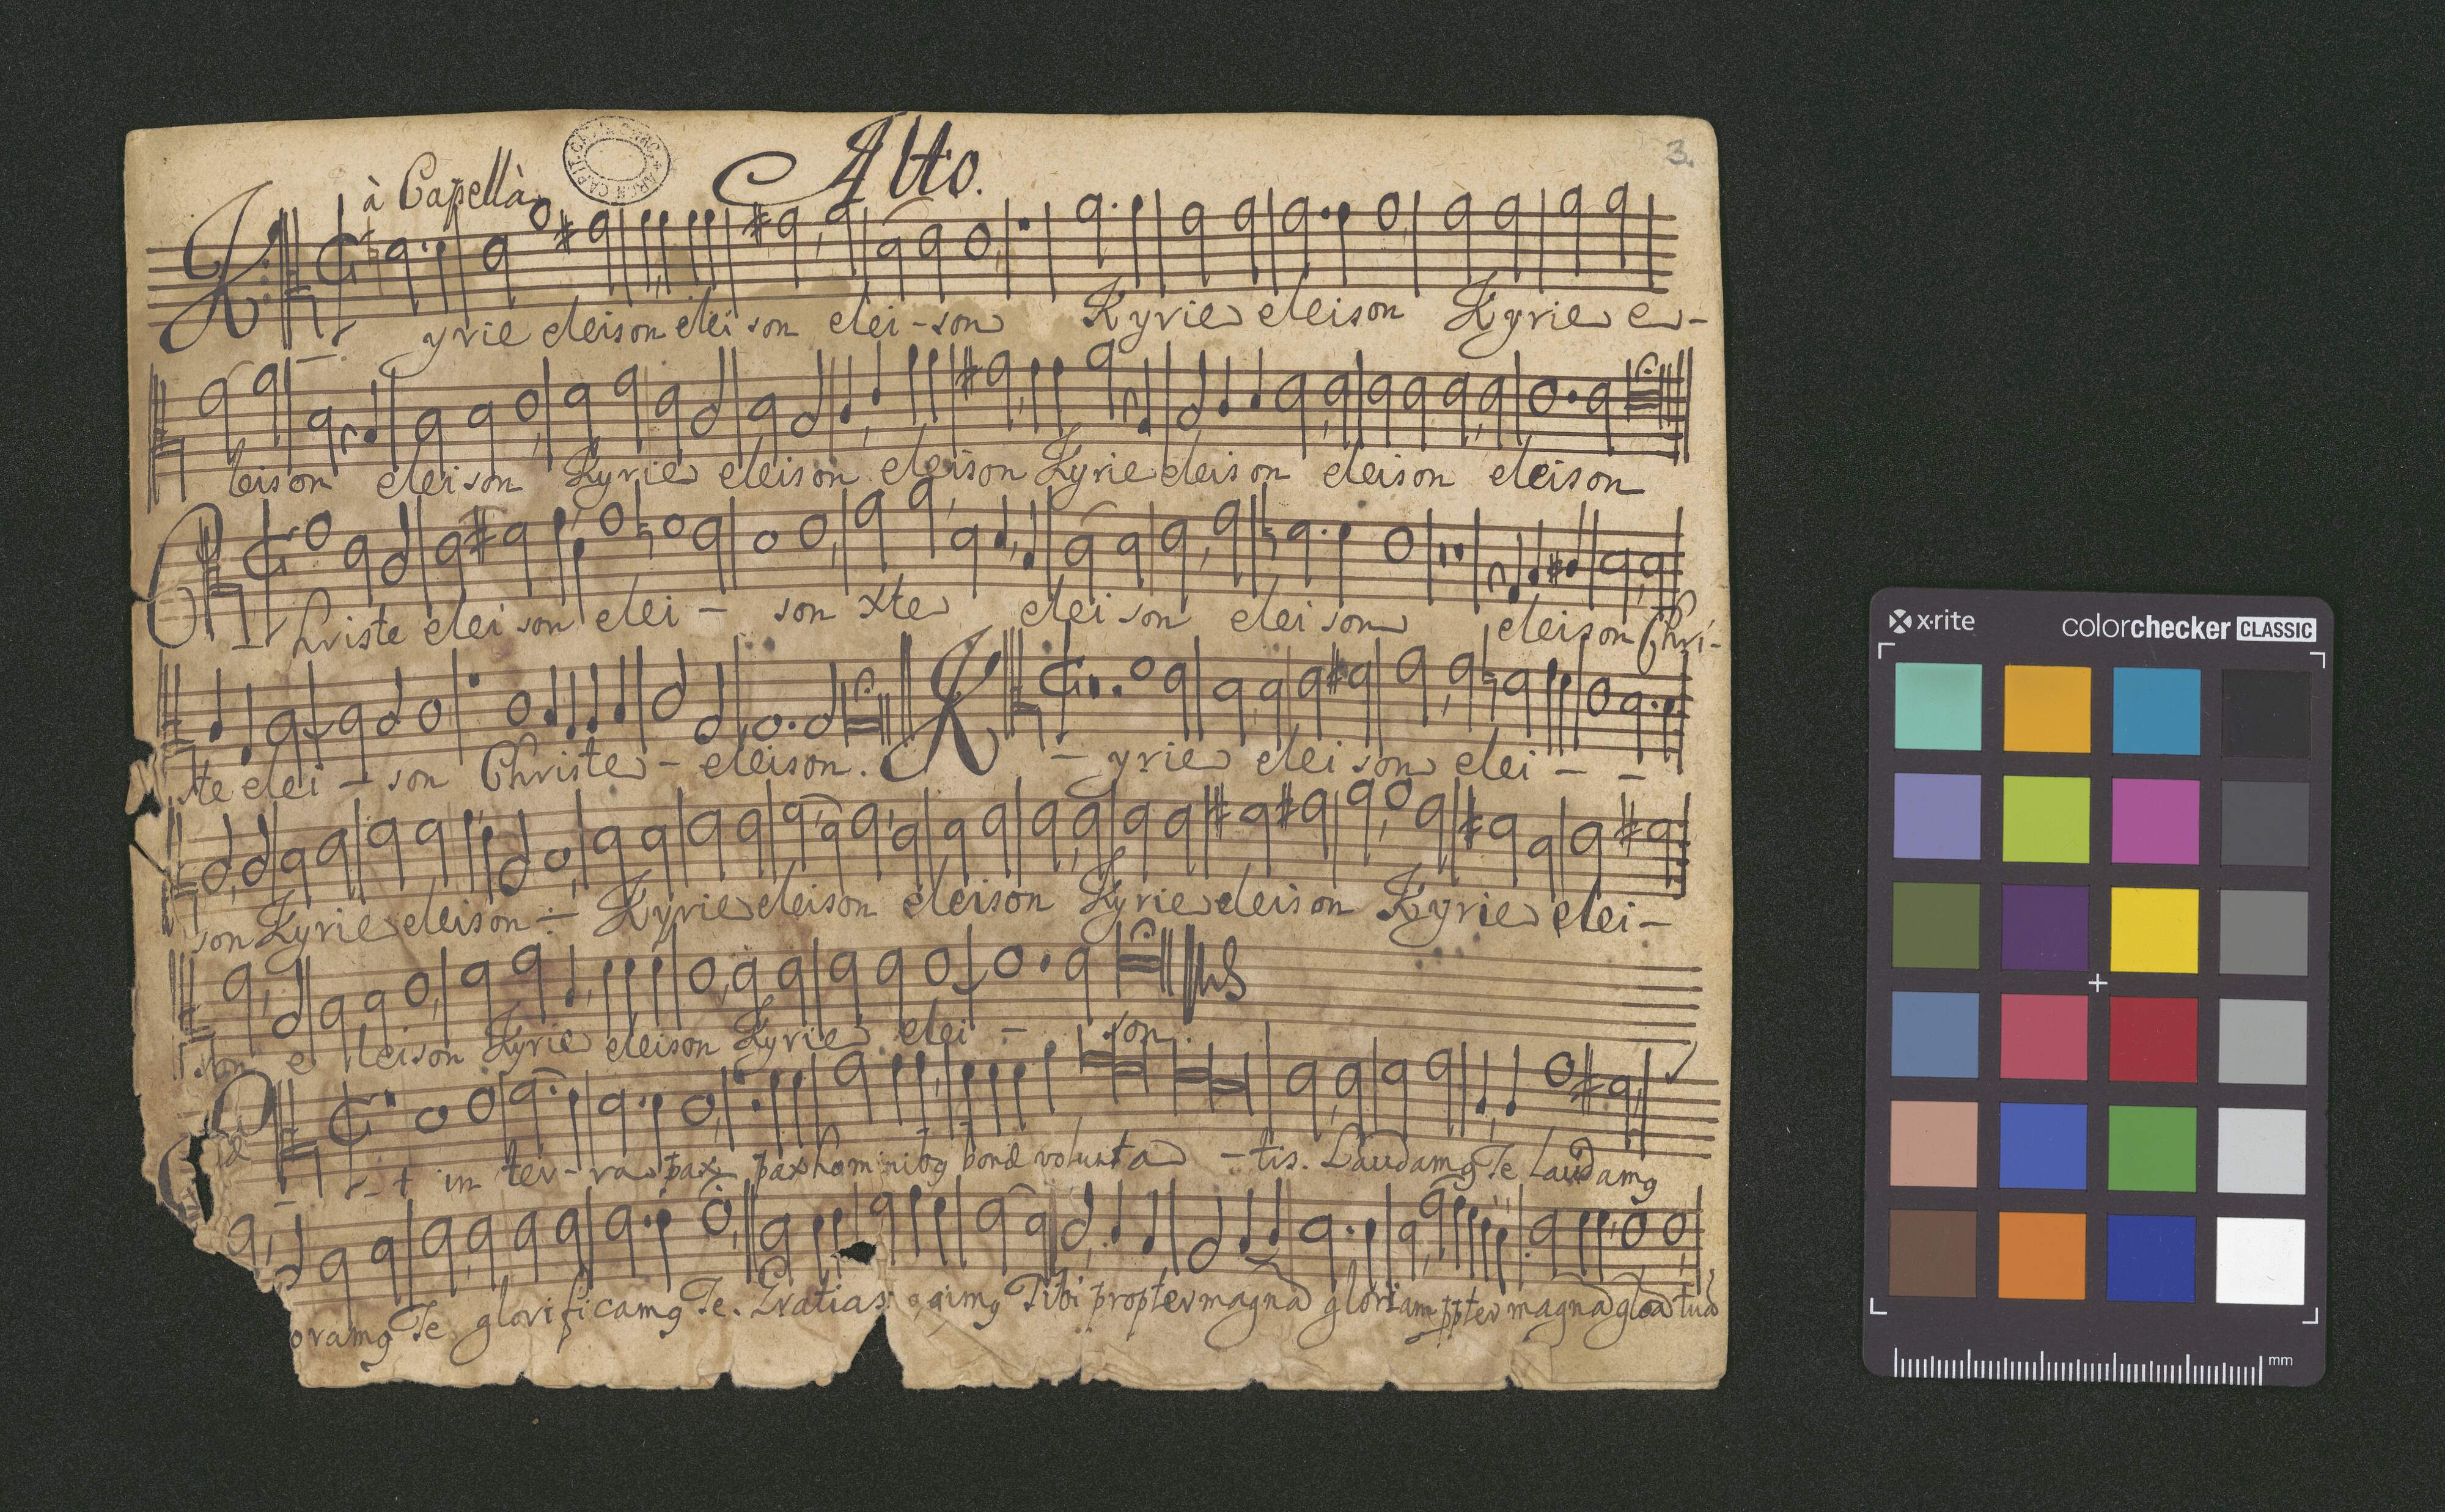 Alto.
3.
à Capellà
Kyrie eleison elei son elei-son Kyrie eleison Kyrie e-
leison eleison Kyrie eleison eleison Kyrie eleison eleison eleison
Christe elei son elei - son Xte elei son elei son eleison Chri-
ste elei - son Christe - eleison. K - yrie elei son elei - -
son Kyrie eleison ÷ Kyrie eleison eleison Kyrie eleison Kyrie elei-
son e leison Kyrie eleison Kyrie elei - son.
Et in ter-ra pax pax hominibꝯ bonæ volunta - tis. Laudamꝯ Te Laudamꝯ
oramꝯ Te glorificamꝯ Te. Gratias agimꝯ Tibi propter magnā gloriam ppter magnā gloā tuā
x·rite
colorchecker CLASSIC
mm